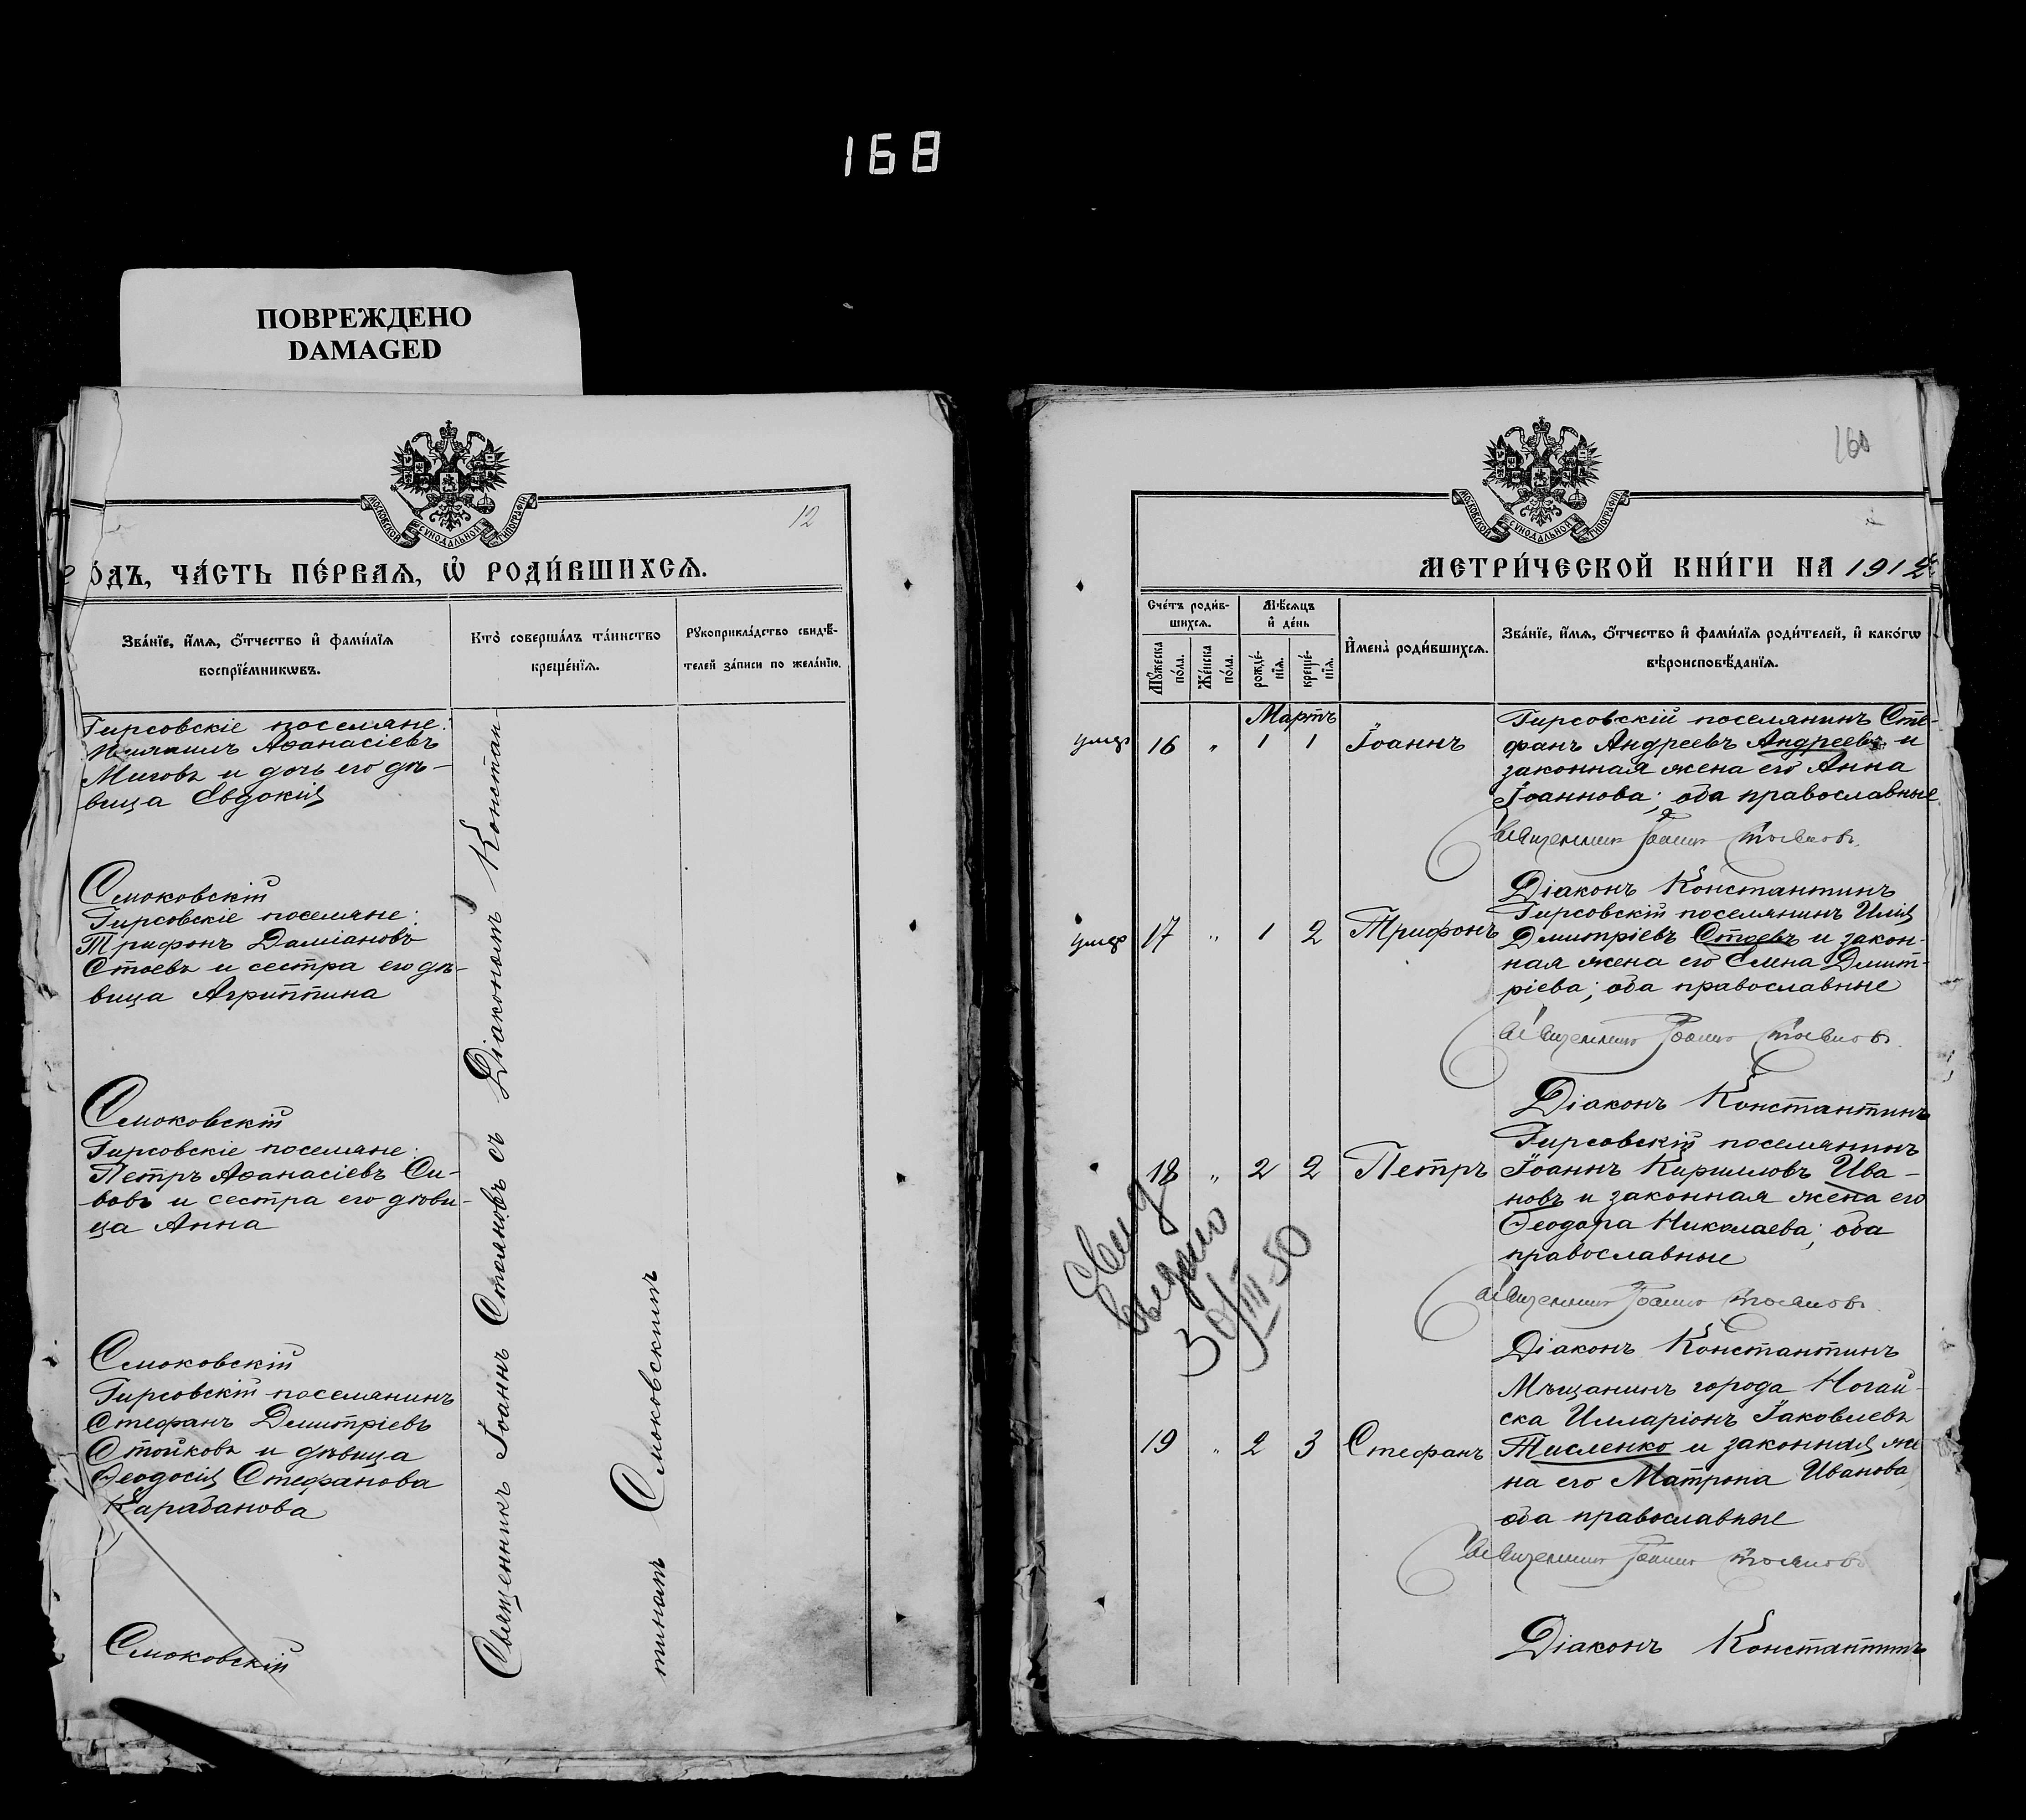 168
ПОВРЕЖДЕНО
DAMAGED
МОСКОВСКОЙ СѴНОДАЛЬНОЙ ТИПОГРАФІИ
12
О́ДЪ, ЧА́СТЬ ПЕ́РВАѦ, Ѡ҆ РОДИ́ВШИХСѦ.
Зва́нїе, и҆́мѧ, ѻ҆́тчество и҆ фами́лїѧ
воспрїе́мникѡвъ.
Кто̀ соверша́лъ та́инство
креще́нїѧ.
Рꙋкоприкла́дство свидѣ́-
телей за́писи по жела́нїю.
Гирсовскіе поселяне:
Михаилъ Аѳанасіевъ
Мицовъ и дочь его дѣ-
вица Евдокія
Смоковскій
Гирсовскіе поселяне:
Трифонъ Даміановъ
Стоевъ и сестра его дѣ-
вица Агриппина
Смоковскій
Гирсовскіе поселяне:
Петръ Аѳанасіевъ Си-
вовъ и сестра его дѣви-
ца Анна
Смоковскій
Гирсовскій поселянинъ
Стефанъ Димитріевъ
Стойковъ и дѣвица
Ѳеодосія Стефанова
Карабанова
Смоковскій
Священникъ Іоаннъ Стояновъ съ Діакономъ Констан-
тиномъ Смоковскимъ
160
МОСКОВСКОЙ СѴНОДАЛЬНОЙ ТИПОГРАФІИ
МЕТРИ́ЧЕСКОЙ КНИ́ГИ НА 1912
Сче́тъ роди́в-
шихсѧ.
Мꙋ́жеска по́ла.
Же́нска по́ла.
Мѣ́сѧцъ
и҆ де́нь
рожде́-
нїѧ.
креще́-
нїѧ.
И҆мена̀ роди́вшихсѧ.
Зва́нїе, и҆́мѧ, ѻ҆́тчество и҆ фами́лїѧ роди́телей, и҆ како́гѡ
вѣроисповѣ́данїѧ.
Мартъ
умер 16 " 1 1 Іоаннъ
Гирсовскій поселянинъ Сте-
фанъ Андреевъ Андреевъ и
законная жена его Анна
Іоаннова; оба православные
Священникъ Іоаннъ Стояновъ
Діаконъ Константинъ
умер 17 " 1 2 Трифонъ
Гирсовскій поселянинъ Илія
Димитріевъ Стоевъ и закон-
ная жена его Елена Димит-
ріева; оба православные
Священникъ Іоаннъ Стояновъ
Діаконъ Константинъ
18 " 2 2 Петръ
Гирсовскій поселянинъ
Іоаннъ Кирилловъ Ива-
новъ и законная жена его
Ѳеодора Николаева; оба
православные
Священникъ Іоаннъ Стояновъ
Діаконъ Константинъ
Свид
выдано
30/III-50
19 " 2 3 Стефанъ
Мѣщанинъ города Ногай-
ска Илларіонъ Іаковлевъ
Тисленко и законная же
на его Матрона Иванова
оба православные
Священникъ Іоаннъ Стояновъ
Діаконъ Константинъ